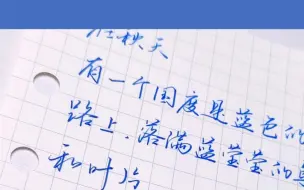 在秋天
有一个国度是蓝色的
路上，落满蓝莹莹的
和叶片